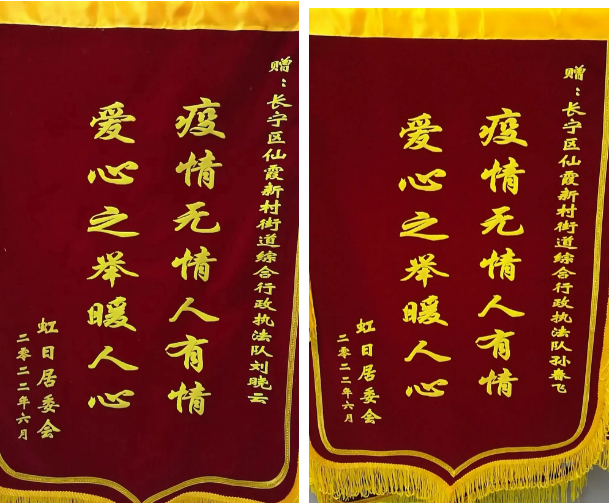 赠：长宁区仙霞新村街道综合行政执法队刘晓云
疫情无情人有情
爱心之举暖人心
虹日居委会
二零二二年六月
赠：长宁区仙霞新村街道综合行政执法队孙春飞
疫情无情人有情
爱心之举暖人心
虹日居委会
二零二二年六月